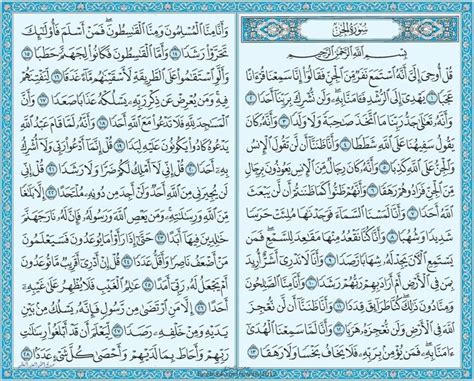 سُورَةُ الجِنِّ
بِسْمِ اللَّهِ الرَّحْمَٰنِ الرَّحِيمِ
قُلْ أُوحِيَ إِلَيَّ أَنَّهُ ٱسْتَمَعَ نَفَرٌ مِّنَ ٱلْجِنِّ فَقَالُوٓا۟ إِنَّا سَمِعْنَا قُرْءَانًا
عَجَبًا ١ يَهْدِىٓ إِلَى ٱلرُّشْدِ فَـَٔامَنَّا بِهِۦ ۖ وَلَن نُّشْرِكَ بِرَبِّنَآ أَحَدًا ٢
وَأَنَّهُۥ تَعَـٰلَىٰ جَدُّ رَبِّنَا مَا ٱتَّخَذَ صَـٰحِبَةً وَلَا وَلَدًا ٣ وَأَنَّهُۥ كَانَ
يَقُولُ سَفِيهُنَا عَلَى ٱللَّهِ شَطَطًا ٤ وَأَنَّا ظَنَنَّآ أَن لَّن تَقُولَ ٱلْإِنسُ
وَٱلْجِنُّ عَلَى ٱللَّهِ كَذِبًا ٥ وَأَنَّهُۥ كَانَ رِجَالٌ مِّنَ ٱلْإِنسِ يَعُوذُونَ بِرِجَالٍ
مِّنَ ٱلْجِنِّ فَزَادُوهُمْ رَهَقًا ٦ وَأَنَّهُمْ ظَنُّوا۟ كَمَا ظَنَنتُمْ أَن لَّن يَبْعَثَ
ٱللَّهُ أَحَدًا ٧ وَأَنَّا لَمَسْنَا ٱلسَّمَآءَ فَوَجَدْنَـٰهَا مُلِئَتْ حَرَسًا
شَدِيدًا وَشُهُبًا ٨ وَأَنَّا كُنَّا نَقْعُدُ مِنْهَا مَقَـٰعِدَ لِلسَّمْعِ ۖ فَمَن
يَسْتَمِعِ ٱلْـَٔانَ يَجِدْ لَهُۥ شِهَابًا رَّصَدًا ٩ وَأَنَّا لَا نَدْرِىٓ أَشَرٌّ أُرِيدَ
بِمَن فِى ٱلْأَرْضِ أَمْ أَرَادَ بِهِمْ رَبُّهُمْ رَشَدًا ١٠ وَأَنَّا مِنَّا ٱلصَّـٰلِحُونَ
وَمِنَّا دُونَ ذَٰلِكَ ۖ كُنَّا طَرَآئِقَ قِدَدًا ١١ وَأَنَّا ظَنَنَّآ أَن لَّن نُّعْجِزَ
ٱللَّهَ فِى ٱلْأَرْضِ وَلَن نُّعْجِزَهُۥ هَرَبًا ١٢ وَأَنَّا لَمَّا سَمِعْنَا ٱلْهُدَىٰٓ
ءَامَنَّا بِهِۦ ۖ فَمَن يُؤْمِنۢ بِرَبِّهِۦ فَلَا يَخَافُ بَخْسًا وَلَا رَهَقًا ١٣
وَأَنَّا مِنَّا ٱلْمُسْلِمُونَ وَمِنَّا ٱلْقَـٰسِطُونَ ۖ فَمَنْ أَسْلَمَ فَأُو۟لَـٰٓئِكَ
تَحَرَّوْا۟ رَشَدًا ١٤ وَأَمَّا ٱلْقَـٰسِطُونَ فَكَانُوا۟ لِجَهَنَّمَ حَطَبًا ١٥
وَأَلَّوِ ٱسْتَقَـٰمُوا۟ عَلَى ٱلطَّرِيقَةِ لَأَسْقَيْنَـٰهُم مَّآءً غَدَقًا ١٦ لِّنَفْتِنَهُمْ
فِيهِ ۚ وَمَن يُعْرِضْ عَن ذِكْرِ رَبِّهِۦ يَسْلُكْهُ عَذَابًا صَعَدًا ١٧ وَأَنَّ
ٱلْمَسَـٰجِدَ لِلَّهِ فَلَا تَدْعُوا۟ مَعَ ٱللَّهِ أَحَدًا ١٨ وَأَنَّهُۥ لَمَّا قَامَ عَبْدُ ٱللَّهِ
يَدْعُوهُ كَادُوا۟ يَكُونُونَ عَلَيْهِ لِبَدًا ١٩ قُلْ إِنَّمَآ أَدْعُوا۟ رَبِّى وَلَآ أُشْرِكُ
بِهِۦٓ أَحَدًا ٢٠ قُلْ إِنِّى لَآ أَمْلِكُ لَكُمْ ضَرًّا وَلَا رَشَدًا ٢١ قُلْ إِنِّى
لَن يُجِيرَنِى مِنَ ٱللَّهِ أَحَدٌ وَلَنْ أَجِدَ مِن دُونِهِۦ مُلْتَحَدًا ٢٢ إِلَّا بَلَـٰغًا
مِّنَ ٱللَّهِ وَرِسَـٰلَـٰتِهِۦ ۚ وَمَن يَعْصِ ٱللَّهَ وَرَسُولَهُۥ فَإِنَّ لَهُۥ نَارَ جَهَنَّمَ
خَـٰلِدِينَ فِيهَآ أَبَدًا ٢٣ حَتَّىٰٓ إِذَا رَأَوْا۟ مَا يُوعَدُونَ فَسَيَعْلَمُونَ
مَنْ أَضْعَفُ نَاصِرًا وَأَقَلُّ عَدَدًا ٢٤ قُلْ إِنْ أَدْرِىٓ أَقَرِيبٌ مَّا تُوعَدُونَ
أَمْ يَجْعَلُ لَهُۥ رَبِّىٓ أَمَدًا ٢٥ عَـٰلِمُ ٱلْغَيْبِ فَلَا يُظْهِرُ عَلَىٰ غَيْبِهِۦٓ
أَحَدًا ٢٦ إِلَّا مَنِ ٱرْتَضَىٰ مِن رَّسُولٍ فَإِنَّهُۥ يَسْلُكُ مِنۢ بَيْنِ
يَدَيْهِ وَمِنْ خَلْفِهِۦ رَصَدًا ٢٧ لِّيَعْلَمَ أَن قَدْ أَبْلَغُوا۟ رِسَـٰلَـٰتِ
رَبِّهِمْ وَأَحَاطَ بِمَا لَدَيْهِمْ وَأَحْصَىٰ كُلَّ شَىْءٍ عَدَدًۢا ٢٨